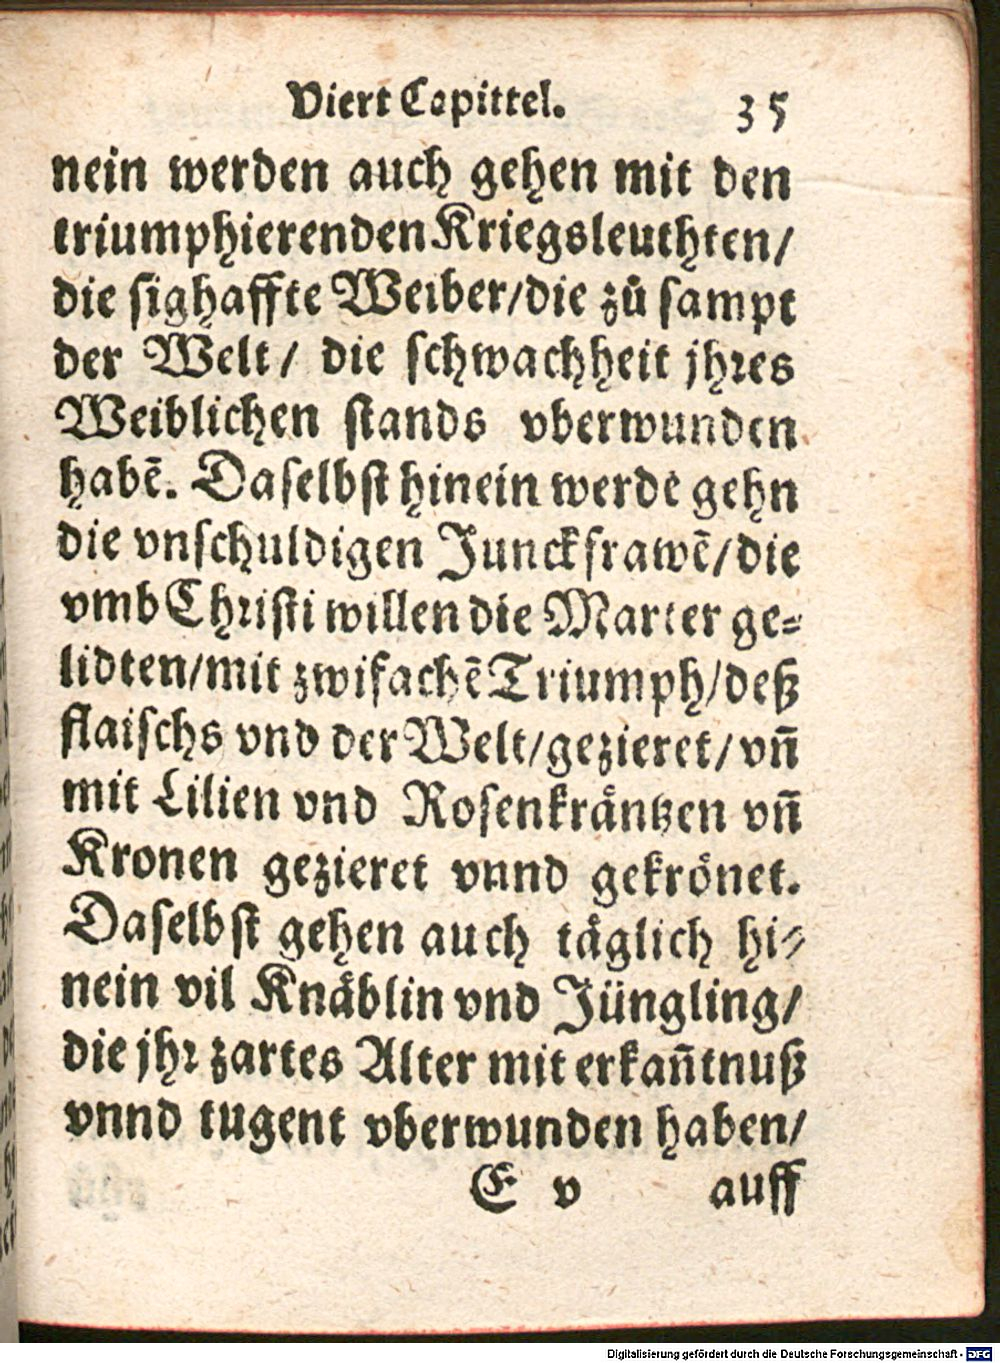 Viert Capittel. 35
nein werden auch gehen mit den
triumphierenden Kriegsleuthten/
die sighaffte Weiber/die zů sampt
der Welt/ die schwachheit jhres
Weiblichen stands vberwunden
habē. Daselbst hinein werdē gehn
die vnschuldigen Junckfrawē/die
vmb Christi willen die Marter ge-
lidten/mit zwifachē Triumph/deß
flaischs vnd der Welt/gezieret/ vñ
mit Lilien vnd Rosenkräntzen vñ
Kronen gezieret vnnd gekrönet.
Daselbst gehen auch täglich hi-
nein vil Knäblin vnd Jüngling/
die jhr zartes Alter mit erkañtnuß
vnnd tugent vberwunden haben/
E v auff
Digitalisierung gefördert durch die Deutsche Forschungsgemeinschaft - DFG